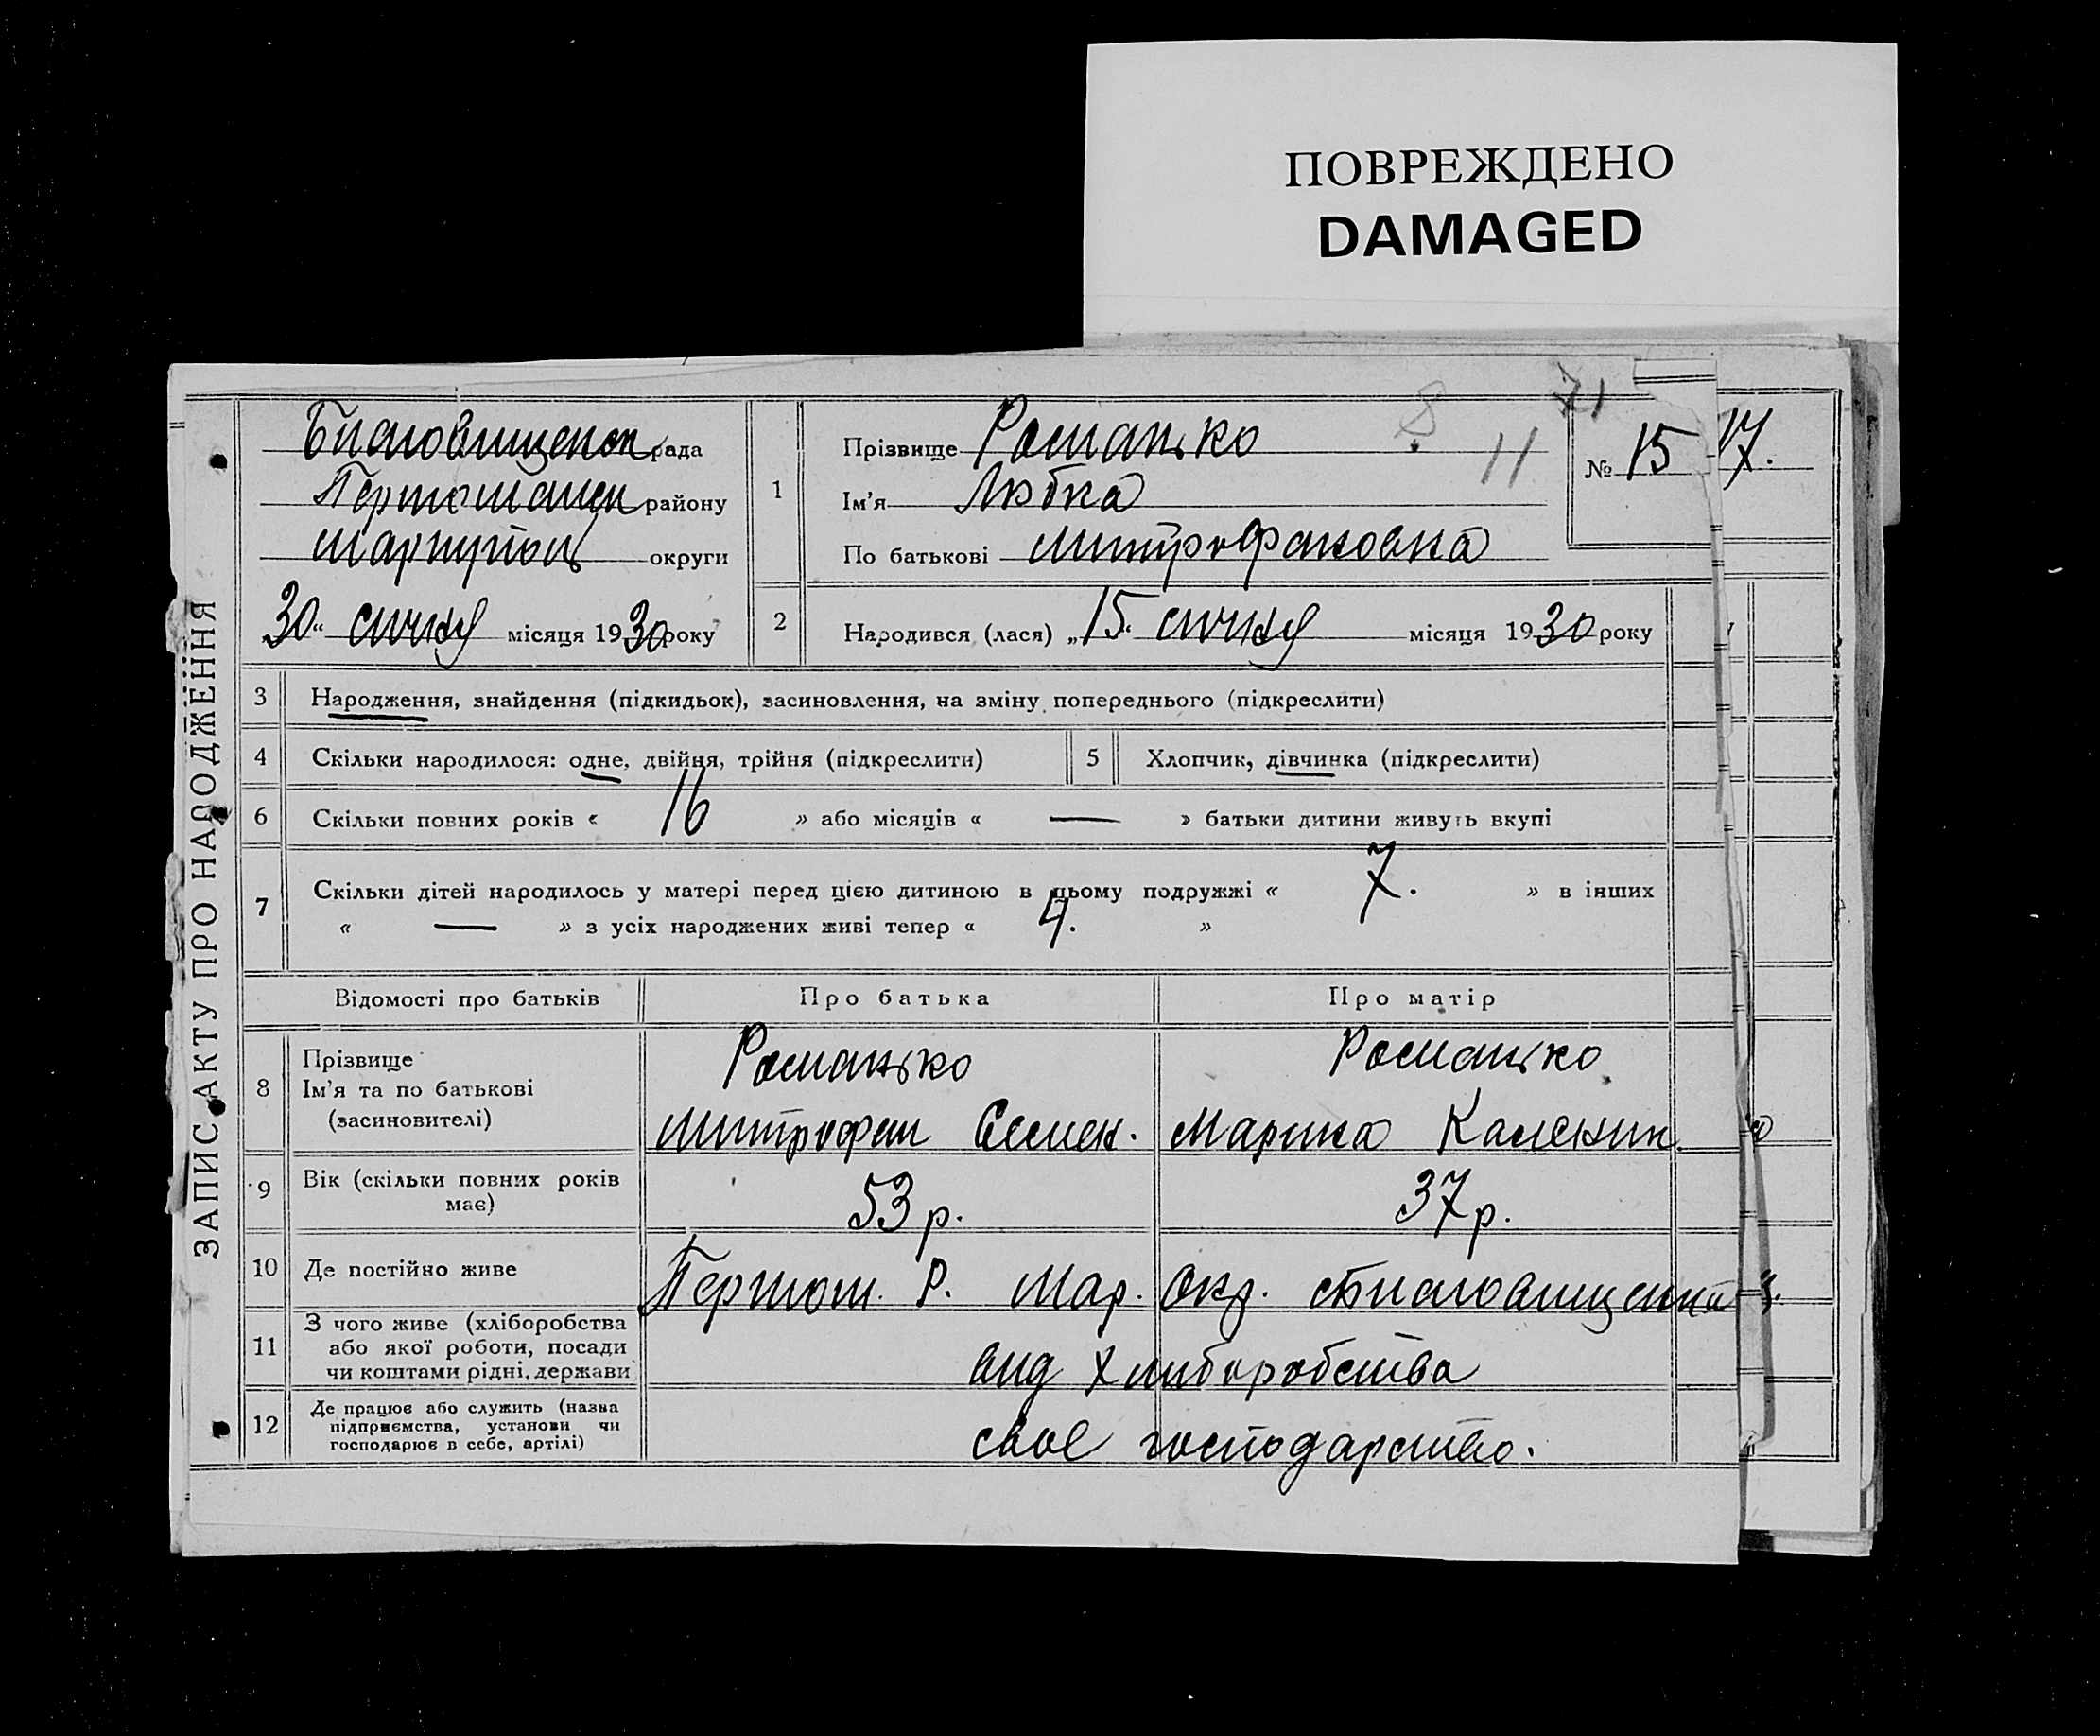 ПОВРЕЖДЕНО
DAMAGED
ЗАПИС АКТУ ПРО НАРОДЖЕННЯ
рада
району
округи
30 " сичня місяця 1930 року
71
8
11
1
Прізвище Романько
Ім'я Любка
По батькові Митрофановна
№ 15
17.
2
Народився (лася) „ 15 " сичня місяця 1930 року
3 Народження, знайдення (підкидьок), засиновлення, на зміну попереднього (підкреслити)
4 Скільки народилося: одне, двійня, трійня (підкреслити) 5 Хлопчик, дівчинка (підкреслити)
6 Скільки повних років « 16 » або місяців « — » батьки дитини живуть вкупі
7 Скільки дітей народилось у матері перед цією дитиною в цьому подружжі « 7. » в інших
« — » з усіх народжених живі тепер « 4. »
Відомості про батьків Про батька Про матір
8 Прізвище
Ім'я та по батькові
(засиновителі)
Романько
Митрофан Семен.
Романько
Марина Каленик.
9 Вік (скільки повних років має) 53 р. 37 р.
10 Де постійно живе Р. Мар. Окр.
11 З чого живе (хліборобства
або якої роботи, посади
чи коштами рідні, держави
вид хлиборобства
12 Де працює або служить (назва
підприємства, установи чи
господарює в себе, артілі)
свое господарство.